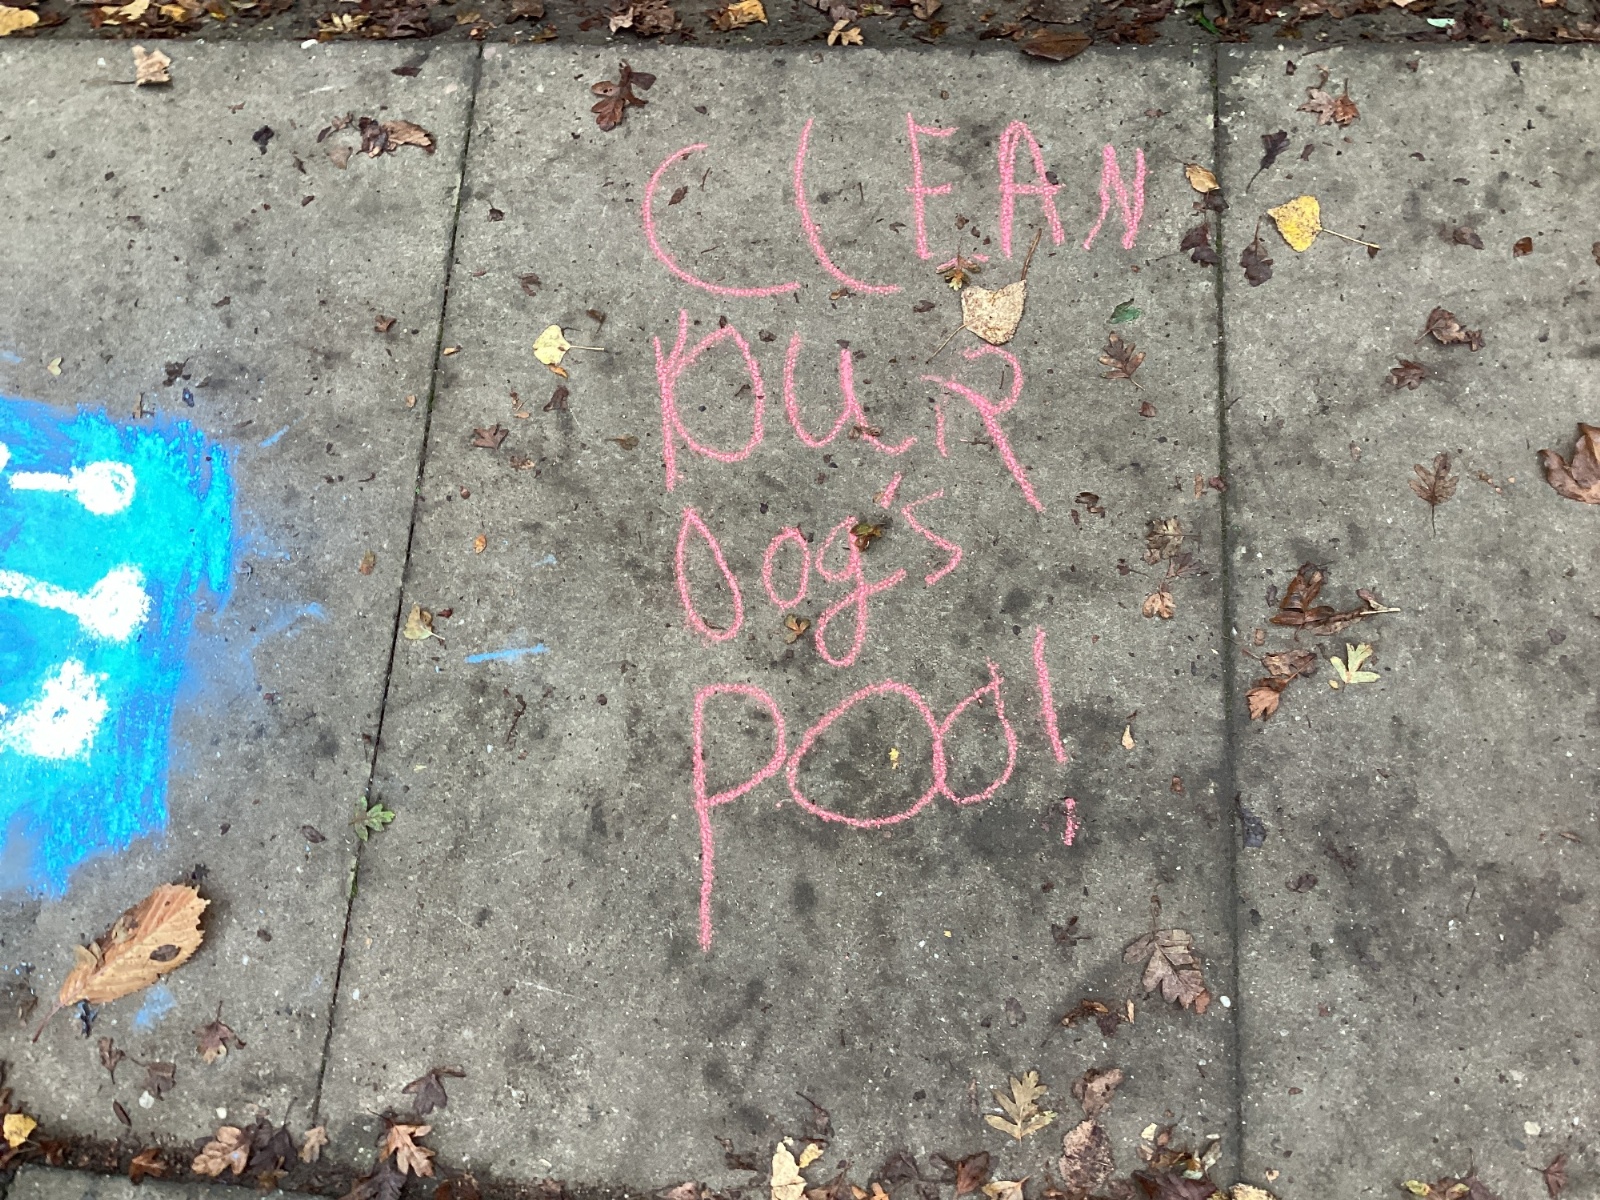 CLEAN
OUR
Dog's
POO!